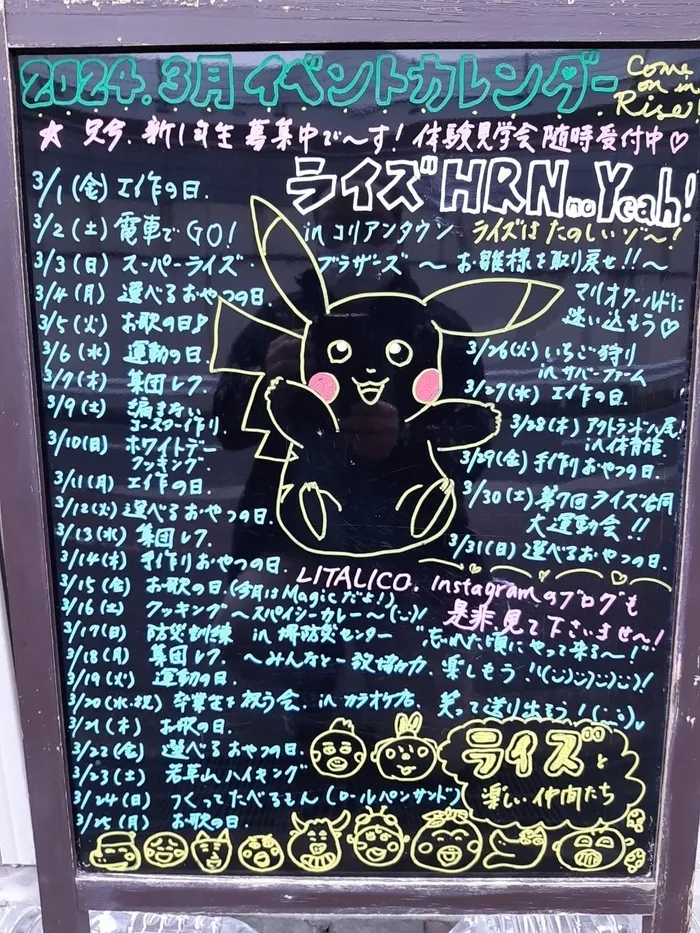 2024.3月 イベントカレンダー
Come on in Rise!
★ 只今、新1年生募集中で〜す! 体験見学会随時受付中♡
ライズ HRN no Yeah!
3/1(金) 工作の日.
3/2(土) 電車でGO! in コリアンタウン ライズはたのしいゾ〜!
3/3(日) スーパーライズブラザーズ 〜お雛様を取り戻せ!!〜
3/4(月) 選べるおやつの日. マリオワールドに
迷い込もう♡
3/5(火) お歌の日♪
3/6(水) 運動の日.
3/7(木) 集団レク.
3/9(土) 編まない
コースター作り.
3/10(日) ホワイトデー
クッキング.
3/11(月) 工作の日.
3/12(火) 選べるおやつの日.
3/13(水) 集団レク.
3/14(木) 手作りおやつの日.
3/15(金) お歌の日.(今月はMagicだよ!)
3/16(土) クッキング〜スパイシーカレー〜
3/17(日) 防災訓練 in 堺防災センター "忘れた頃にやって来る〜!"
3/18(月) 集団レク. 〜みんなと一致協力、楽しもう!!
3/19(火) 運動の日.
3/20(水・祝) 卒業生を祝う会. in カラオケ店. 笑って送り出そう!
3/21(木) お歌の日.
3/22(金) 選べるおやつの日.
3/23(土) 若草山ハイキング
3/24(日) つくってたべるもん(ロールペンサンド)
3/25(月) お歌の日.
3/26(火) いちご狩り
in サバーファーム
3/27(水) 工作の日.
3/28(木) アクトランド八尾!
in 体育館.
3/29(金) 手作りおやつの日.
3/30(土) 第7回 ライズ合同
大運動会!!
3/31(日) 選べるおやつの日.
LITALICO. Instagramのブログも
是非見て下さいませ〜!
ライズと
楽しい仲間たち